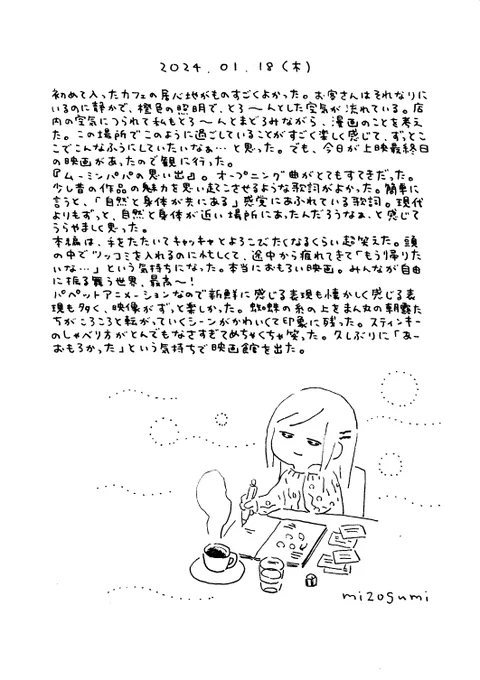 2024.01.18(木)
初めて入ったカフェの居心地がものすごくよかった。お客さんはそれなりに
いるのに静かで、橙色の照明で、とろ〜んとした空気が流れている。店
内の空気につられて私もとろ〜んとまどろみながら、漫画のことを考え
た。この場所でこのように過ごしていることがすごく楽しく感じて、ずっとこ
こでこんなふうにしていたいなぁ…と思った。でも、今日が上映最終日
の映画があったので観に行った。
『ムーミンパパの思い出』。オープニング曲がとてもすてきだった。
少し昔の作品の魅力を思い起こさせるような歌詞がよかった。簡単に
言うと、「自然と身体が共にある」感覚にあふれている歌詞。現代
よりもずっと、自然と身体が近い場所にあったんだろうなぁ、と感じて
うらやましく思った。
本編は、手をたたいてキャッキャとよろこびたくなるくらい超笑えた。頭
の中でツッコミを入れるのに忙しくて、途中から疲れてきて「もう帰りた
いな…」という気持ちになった。本当におもろい映画。みんなが自由
に振る舞う世界、最高〜!
パペットアニメーションなので新鮮に感じる表現も懐かしく感じる表
現も多く、映像がずっと楽しかった。蜘蛛の糸の上をまん丸の朝露た
ちがころころと転がっていくシーンがかわいくて印象に残った。スティンキー
のしゃべり方がとんでもなさすぎてめちゃくちゃ笑った。久しぶりに「あー
おもろかった」という気持ちで映画館を出た。
mizogumi